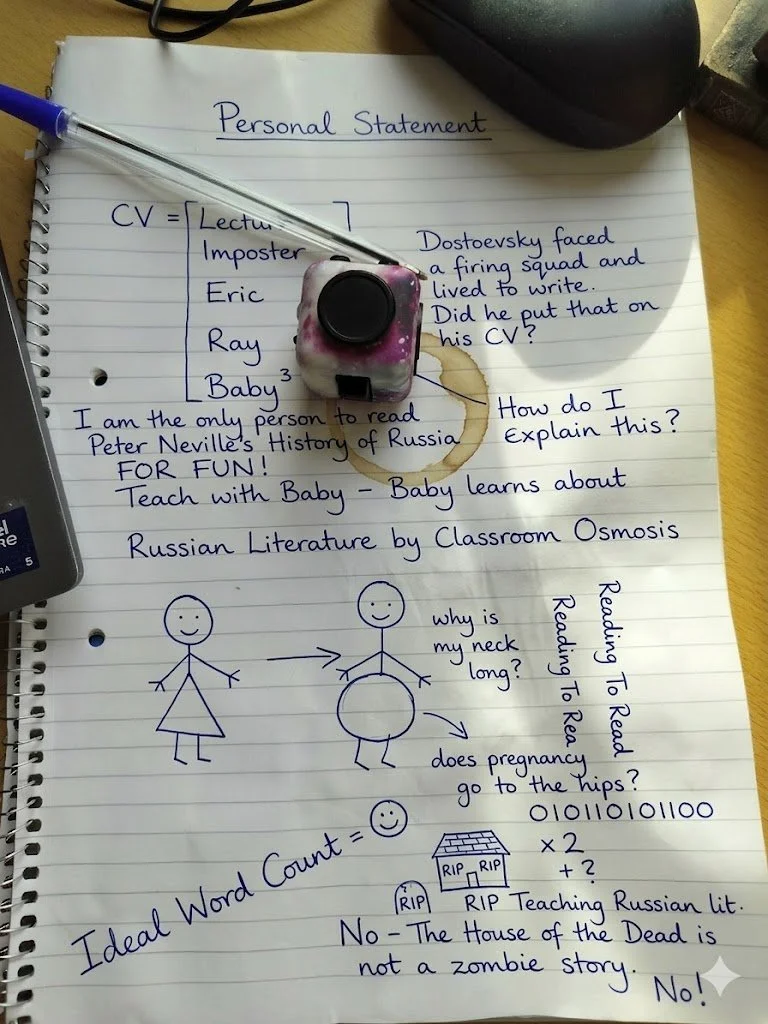 Personal Statement
CV =
Imposter
Eric
Ray
Baby³
Dostoevsky faced
a firing squad and
lived to write.
Did he put that on
his CV?
How do I
Explain this?
I am the only person to read
Peter Neville's History of Russia
FOR FUN!
Teach with Baby – Baby learns about
Russian Literature by Classroom Osmosis
why is
my neck
long?
Reading To Rea
Reading To Read
does pregnancy
go to the hips?
010110101100
x 2
+ ?
Ideal Word Count =
RIP RIP
RIP
RIP Teaching Russian lit.
No – The House of the Dead is
not a zombie story.
No!
5